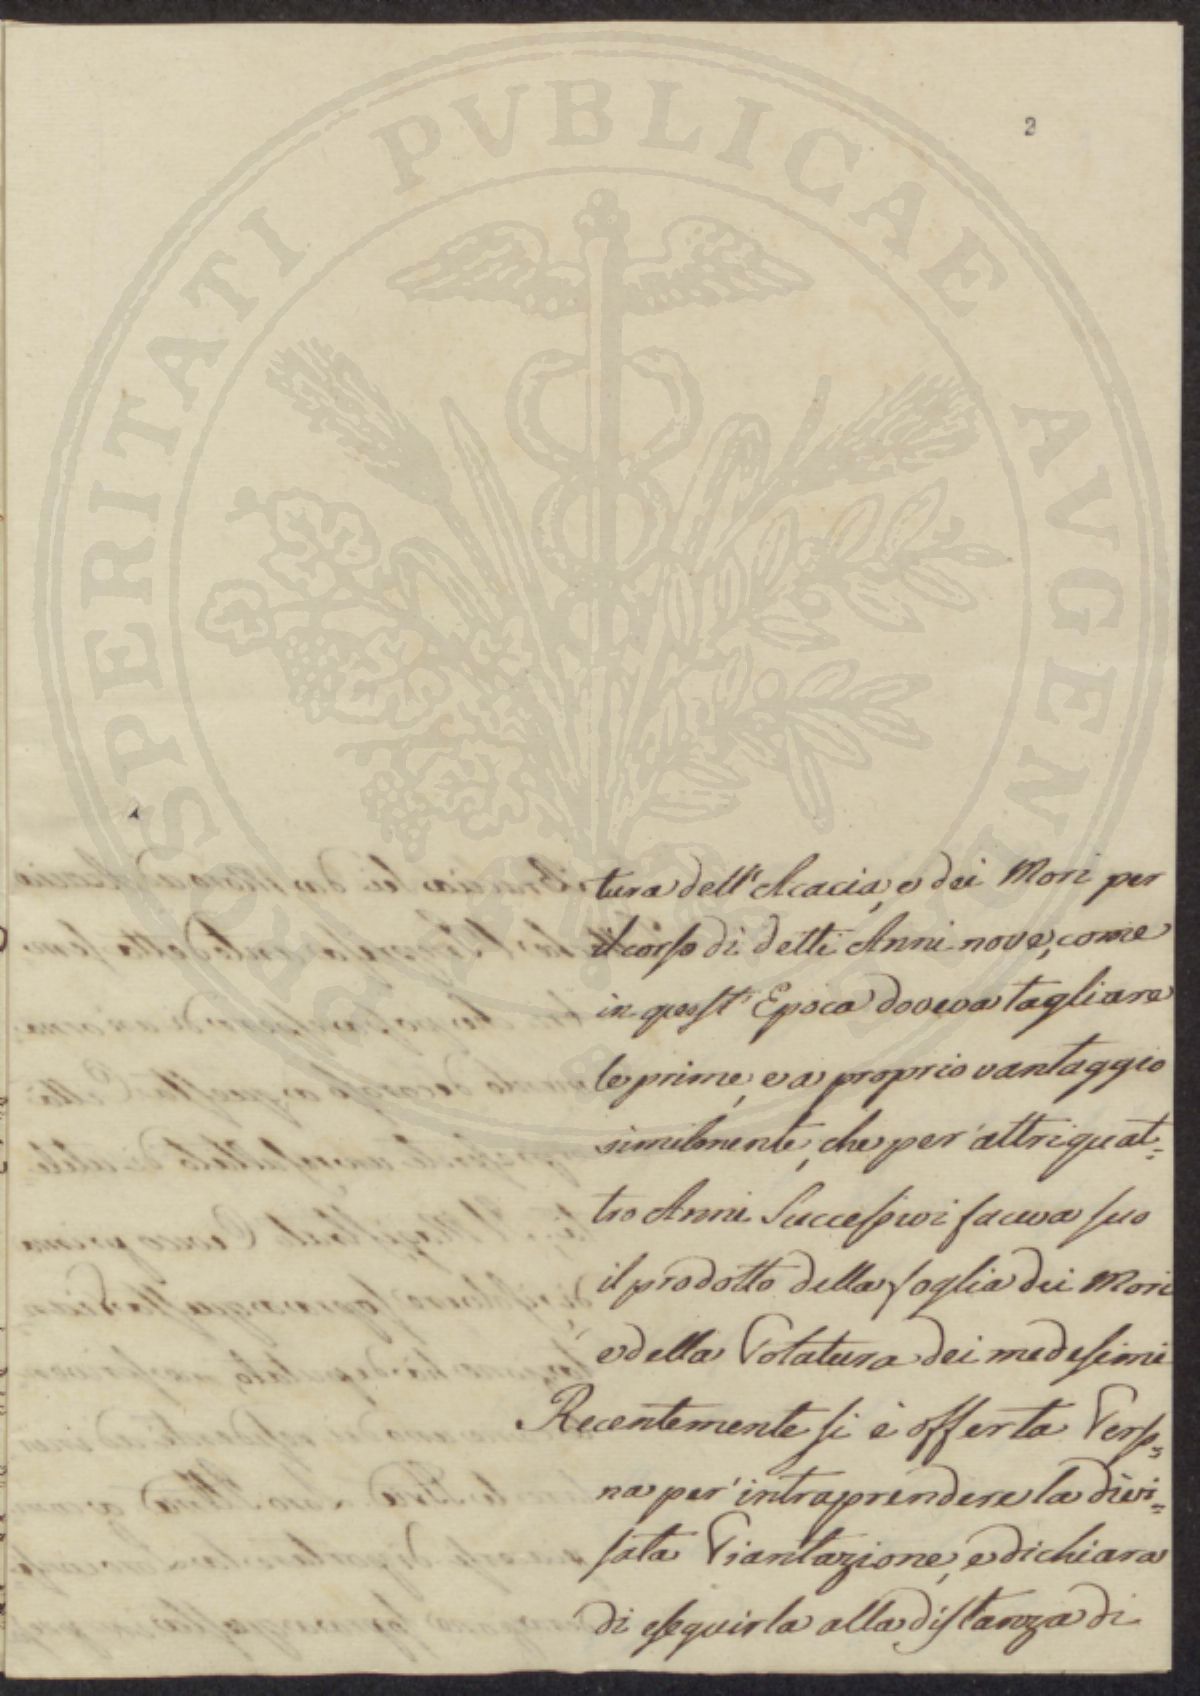 2
PROSPERITATI PVBLICAE AVGENDAE
tura dell' Acacia, e dei Mori per
il corso di detti Anni nove, come
in quest' Epoca doveva tagliare
le prime, e a proprio vantaggio
similmente, che per altri quat=
tro Anni Successivi faceva suo
il prodotto della foglia dei Mori
e della Potatura dei medesimi
Recentemente si è offerta Perso=
na per intraprendere la divi=
sata Piantazione, e dichiara
di eseguirla alla distanza di